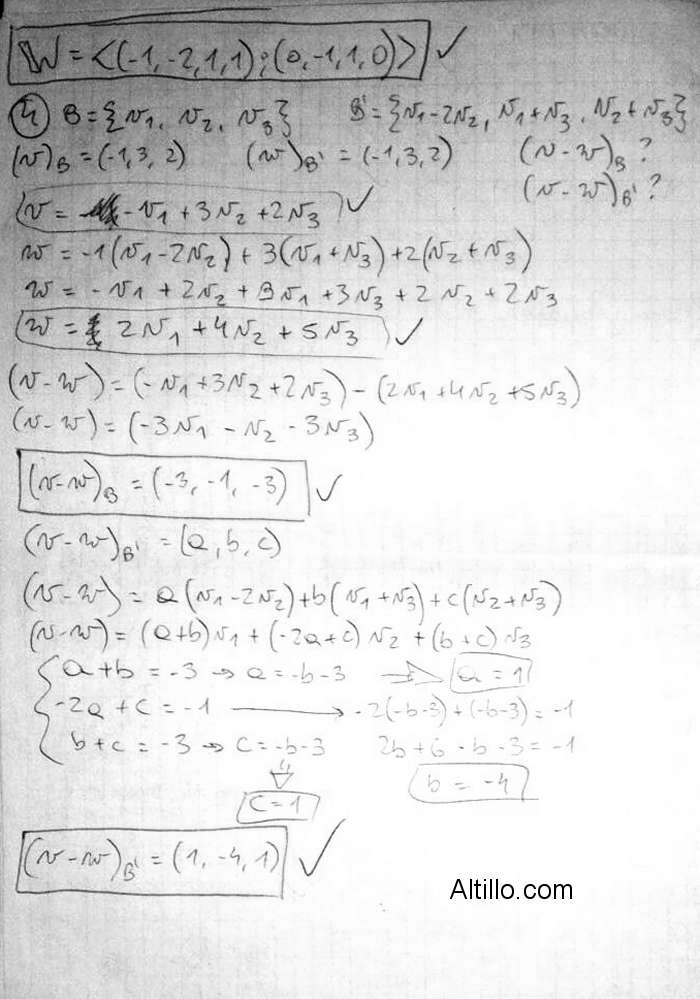 W = <(-1,-2,1,1);(0,-1,1,0)> ✓
④ B = {v₁, v₂, v₃}   B' = {v₁-2v₂, v₁+v₃, v₂+v₃}
(v)B = (-1,3,2)   (w)B' = (-1,3,2)   (v-w)B ?
(v-w)B' ?
v = -v₁ + 3v₂ + 2v₃ ✓
w = -1(v₁-2v₂) + 3(v₁+v₃) + 2(v₂+v₃)
w = -v₁ + 2v₂ + 3v₁ + 3v₃ + 2v₂ + 2v₃
w = 2v₁ + 4v₂ + 5v₃ ✓
(v-w) = (-v₁+3v₂+2v₃) - (2v₁+4v₂+5v₃)
(v-w) = (-3v₁ - v₂ - 3v₃)
(v-w)B = (-3, -1, -3) ✓
(v-w)B' = (a, b, c)
(v-w) = a(v₁-2v₂) + b(v₁+v₃) + c(v₂+v₃)
(v-w) = (a+b)v₁ + (-2a+c)v₂ + (b+c)v₃
a+b = -3 → a = -b-3 ⇒ a = 1
-2a+c = -1 → -2(-b-3)+(-b-3) = -1
b+c = -3 → c = -b-3   2b+6-b-3 = -1
c = 1   b = -4
(v-w)B' = (1, -4, 1) ✓
Altillo.com